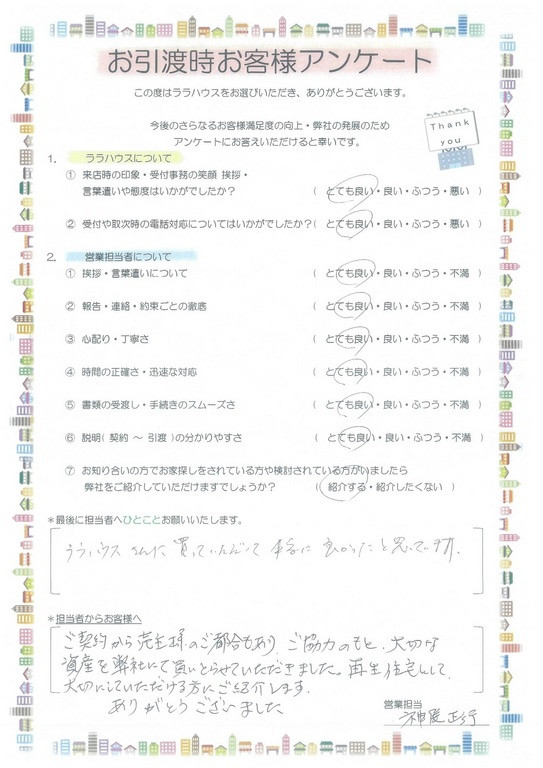 お引渡時お客様アンケート
この度はララハウスをお選びいただき、ありがとうございます。
今後のさらなるお客様満足度の向上・弊社の発展のため
アンケートにお答えいただけると幸いです。
Thank
you
1. ララハウスについて
① 来店時の印象・受付事務の笑顔 挨拶・
言葉遣いや態度はいかがでしたか? ( とても良い・良い・ふつう・悪い )
② 受付や取次時の電話対応についてはいかがでしたか?( とても良い・良い・ふつう・悪い )
2. 営業担当者について
① 挨拶・言葉遣いについて ( とても良い・良い・ふつう・不満 )
② 報告・連絡・約束ごとの徹底 ( とても良い・良い・ふつう・不満 )
③ 心配り・丁寧さ ( とても良い・良い・ふつう・不満 )
④ 時間の正確さ・迅速な対応 ( とても良い・良い・ふつう・不満 )
⑤ 書類の受渡し・手続きのスムーズさ ( とても良い・良い・ふつう・不満 )
⑥ 説明( 契約 ~ 引渡 )の分かりやすさ ( とても良い・良い・ふつう・不満 )
⑦ お知り合いの方でお家探しをされている方や検討されている方がいましたら
弊社をご紹介していただけますでしょうか? ( 紹介する・紹介したくない )
*最後に担当者へひとことお願いいたします。
ララハウスさんに買っていただいて本当に良かったと思っています.
*担当者からお客様へ
ご契約から売主様のご都合もあり、ご協力のもと、大切な
資産を弊社にて買いとらせていただきました。再生住宅として、
大切にしていただける方にご紹介します.
ありがとうございました
営業担当
正行